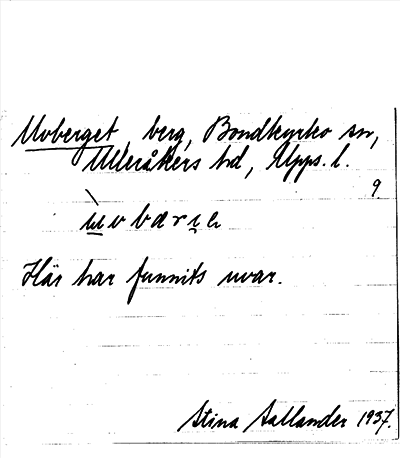 Uvberget, berg, Bondkyrko sn,
Ulleråkers hd, Upps. l.
9
Här har funnits uvar.
Stina Sallander 1937.